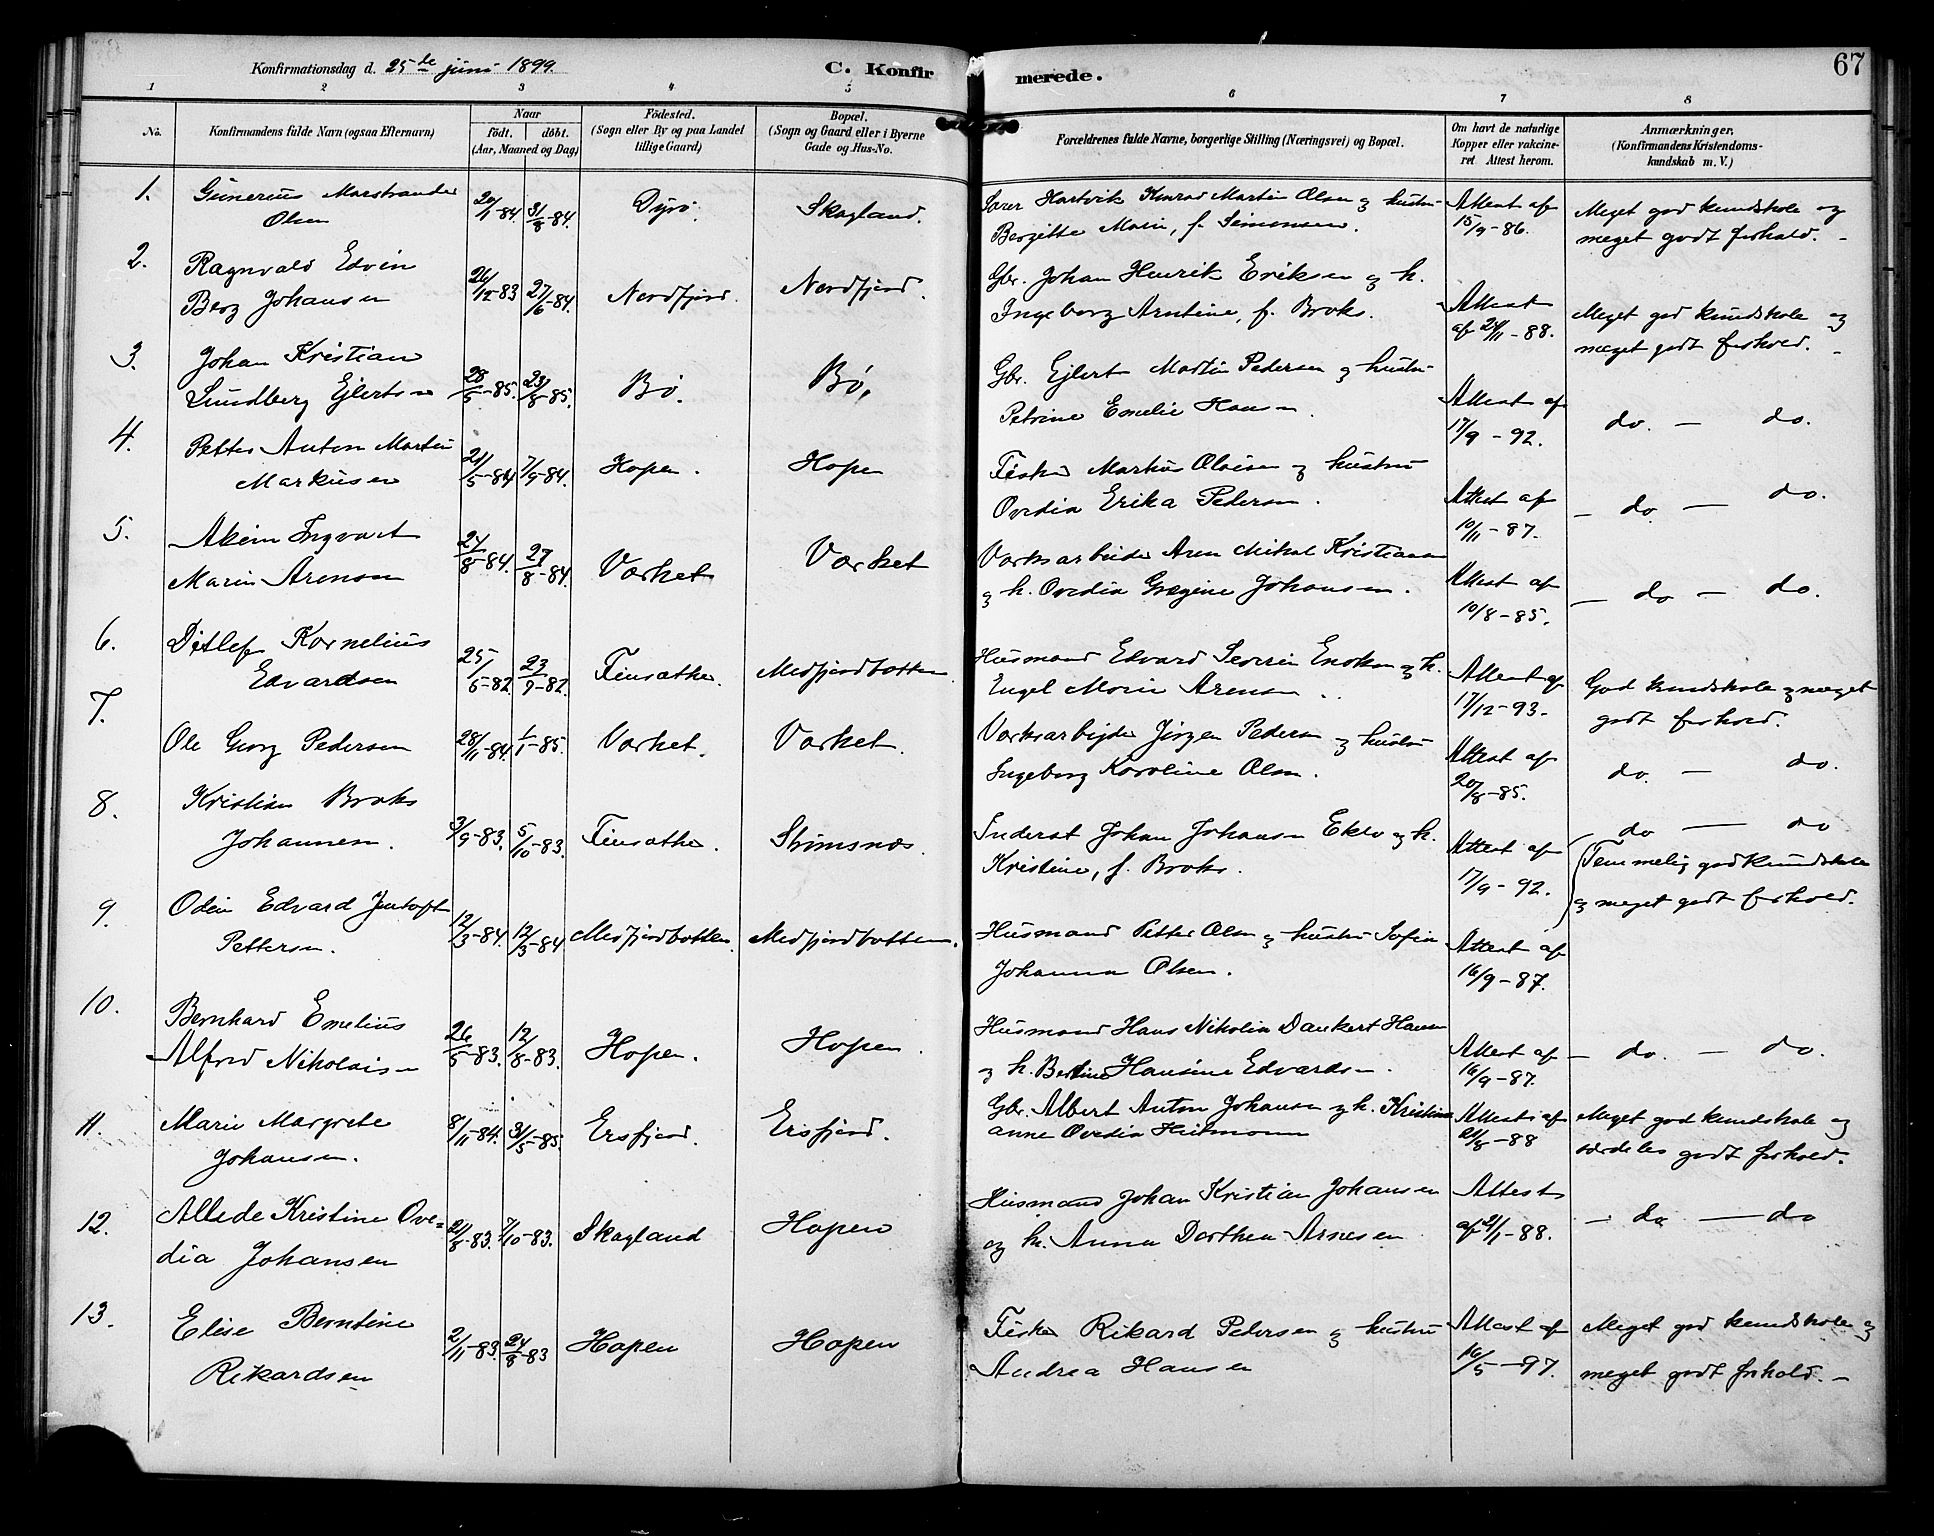 Konfirmationsdag d. 25de juni 1899. C. Konfirmerede. 67
1 2 3 4 5 6 7 8
No. Konfirmandens fulde Navn (ogsaa Efternavn) Naar födt. döbt. (Aar, Maaned og Dag) Födested. (Sogn eller By og paa Landet tillige Gaard) Bopæl. (Sogn og Gaard eller i Byerne Gade og Hus-No. Forældrenes fulde Navne, borgerlige Stilling (Næringsvei) og Bopæl. Om havt de naturlige Kopper eller vakcineret Attest herom. Anmærkninger. (Konfirmandens Kristendomskundskab m. V.)
1. Gunerius Marstrander 20/1-84. 31/8-84. Dyrö. Skogland. Hartvik Konrad Martin Olsen og hustru Attest af Meget god kundskab og
Olsen Bergitte Marie, f. Simonsen. 15/9-86. meget godt forhold. -
2. Ragnvald Edvin 26/12-83 27/6-84. Nordfjord. Nordfjord. Gbr. Johan Henrik Eriksen og h. Attest Meget god kundskab og
Berg Johansen Ingeborg Arntine, f. Broks. af 21/11-88. meget godt forhold. -
3. Johan Kristian 28/5-85. 23/8-85. Bö. Bö. Gbr. Ejlert Martin Pedersen og hustru Attest af do. - do.
Lundberg Ejlertsen Petrine Emelie Hansen. 17/9-92.
4. Petter Anton Martin 21/5-84 7/9-84. Hopen. Hopen Fisker Markus Olaisen og hustru Attest af - do - do.
Markusen Ovedia Erika Pedersen. 10/11-87.
5. Akim Ingvart 24/8-84. 27/8-84. Værket Værket Værksarbeider Aren Mikal Kristiansen Attest af - do - do.
Marin Arensen og h. Ovedia Gregine Johansen. 10/8-85.
6. Ditlef Kornelius 25/5-82 23/9-82. Finsæther. Medfjordbotten. Husmand Edvard Severin Enoksen og h. Attest af God kundskab og meget
Edvardsen Engel Marie Arensen. 17/12-93. godt forhold.
7. Ole Georg Pedersen 28/11-84. 1/1-85. Værket. Værket. Værksarbejder Jörgen Pedersen og hustru Attest af do. - do.
Ingeborg Karoline Olsen. 20/8-85.
8. Kristian Broks 3/9-83. 5/10-83. Finsæther. Strömsnæs. Inderst Johan Johansen Eklo og h. Attest af do - do
Johannesen. Kristine, f. Broks. 17/9-92. (Temmelig god kundskab
9. Odin Edvard Jentoft 12/3-84. 12/3-84 Medfjordbotten. Medfjordbotten. Husmand Petter Olsen og hustru Sofie Attest af og meget godt forhold.
Pettersen. Johanna Olsen. 16/9-87.
10. Bernhard Emelius 26/5-83. 12/8-83. Hopen. Hopen. Husmand Hans Nikolai Dankert Hansen Attest af - do. - do.
Alfred Nikolaisen og h. Bertine Hansine Edvardsen. 16/9-87.
11. Marie Margrete 8/11-84. 31/5-85. Ersfjord. Ersfjord. Gbr. Albert Anton Johansen og h. Kristine Attest af Meget god kundskab og
Johansen. anne Ovedia Heitmann 21/8-88 særdeles godt forhold.
12. Allede Kristine Ove= 21/8-83. 7/10-83. Skogland Hopen Husmand Johan Kristian Johansen Attest - do - do
dia Johansen og h. Anna Dorthea Arnesen af 21/1-88.
13. Elise Berntine 2/11-83. 24/8-83 Hopen Hopen Fisker Rikard Pedersen og hustru Attest af Meget god kundskab og
Rikardsen Andrea Hansen 16/5-97. meget godt forhold. -